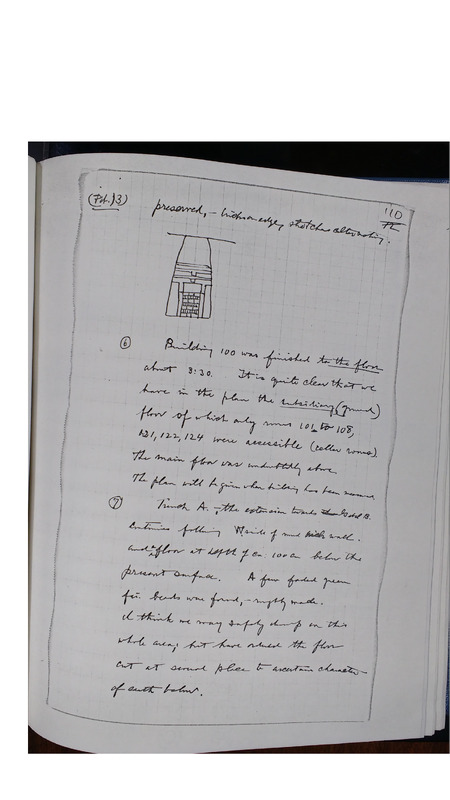 (Feb. 13)
110
preserved, – bricks on edge, stretcher alternating.
⑥ Building 100 was finished to the floor
about 3:30. It is quite clear that we
have in the plan the subsidiary (ground)
floor of which only rooms 101 to 108,
121, 122, 124 were accessible (cellar rooms).
The main floor was undoubtedly above.
The plan will be given when has been
⑦ Trench A. – the extension towards
continues following side of mud wall.
and floor at depth of ca. 100 cm below the
present surface. A few faded green
fai. beads were found, – roughly made.
I think we may safely dump on this
whole area; but have ordered the floor
cut at second place to ascertain character
of earth below.